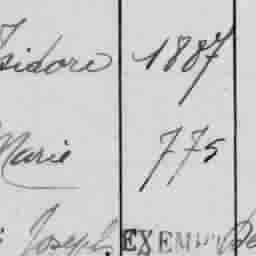 Isidore 1887
Marie 775
Joseph EXEMPT